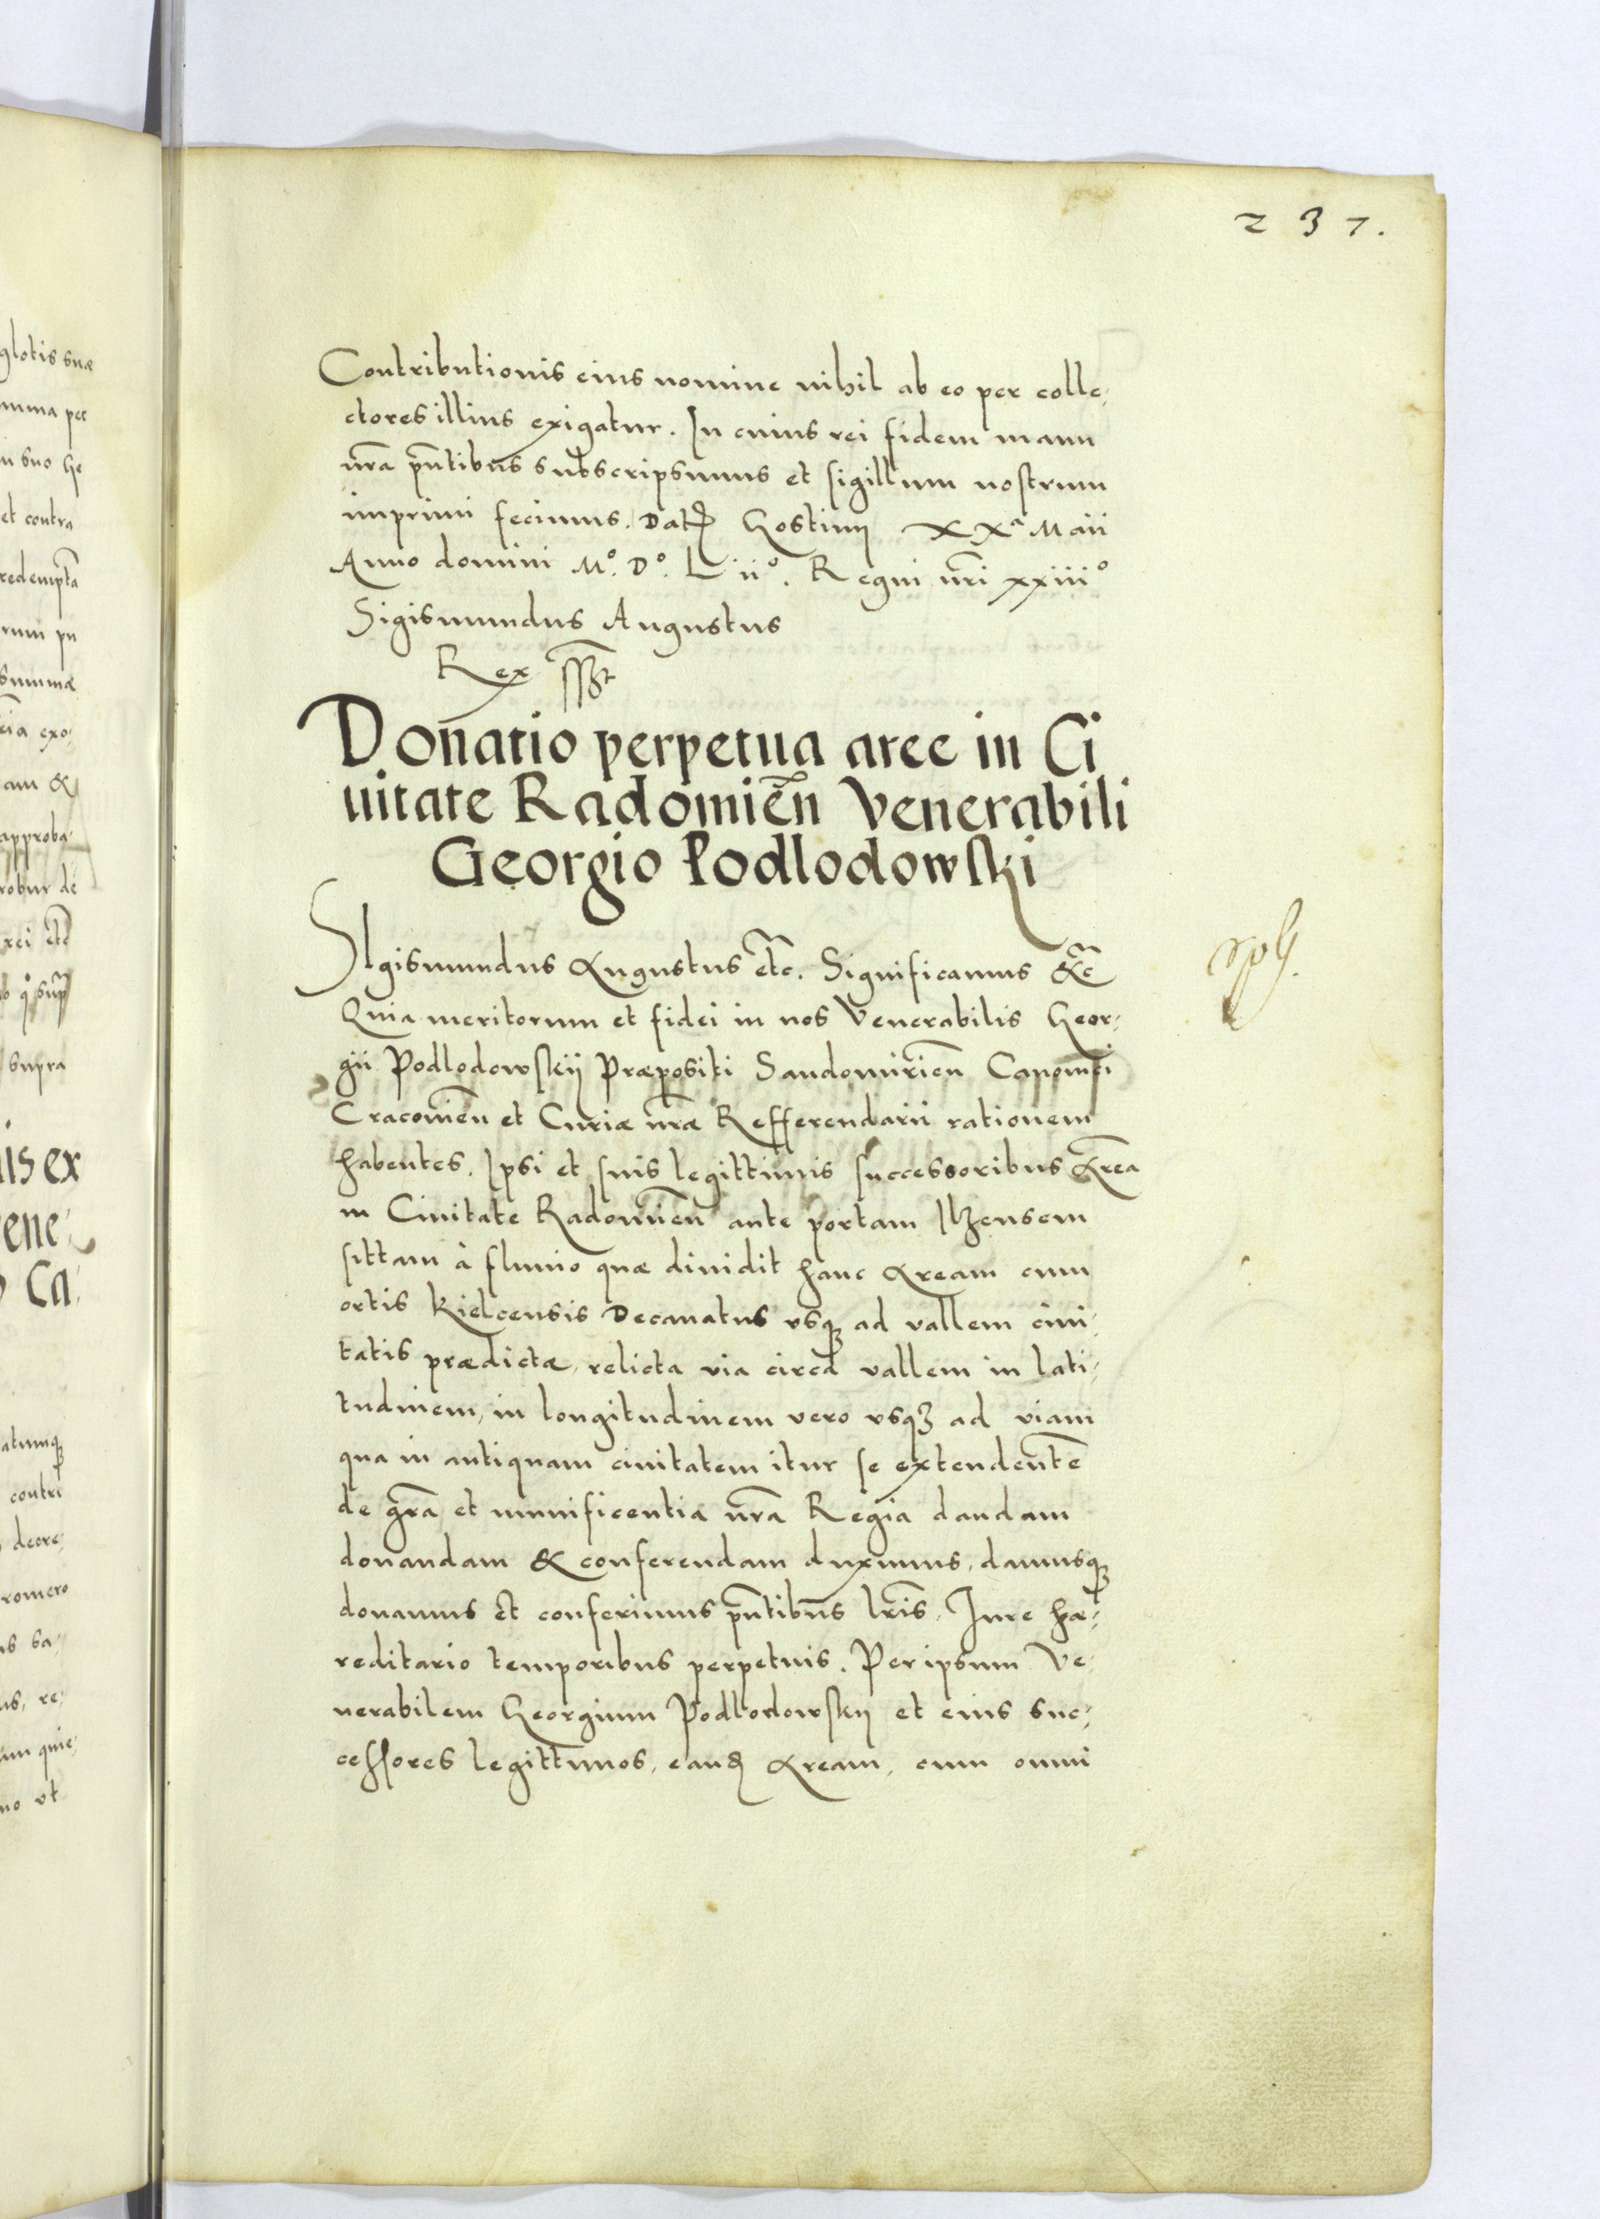 237.
Contributionis eius nomine nihil ab eo per colle,
ctores illius exigatur. In cuius rei fidem manu
nr̃a pñtibus subscripsimus et sigillum nostrum
imprimi fecimus. Dat Gostinij XXª Maii
Anno domini Mº. Dº. L iiº. Regni nr̃i xxiiiº
Sigismundus Augustus
Rex
Donatio perpetua aree in Ci
uitate Radomień Venerabili
Georgio Podlodowski
SIgismundus Augustus etc̃. Significamus &c̃
Quia meritorum et fidei in nos Venerabilis Geor,
gii Podlodowskij Præpositi Sandomirień Canonici
Cracovień et Curiæ nr̃æ Refferendarii rationem
habentes. Ipsi et suis legittimis successoribus Aream
in Ciuitate Radomień ante portam Ilzensem
sittam à fluuio quæ diuidit hanc Aream cum
ortis Kielcensis Decanatus vsqꝫ ad vallem ciui,
tatis prædictæ, relicta via circa vallem in lati,
tudinem, in longitudinem vero vsqꝫ ad viam
qua in antiquam ciuitatem itur se extendentẽ
de gr̃a et munificentia nr̃a Regia dandam
donandam & conferendam duximus, damusqꝫ
donamus et conferimus pñtibus lr̃is, Iure hæ,
reditario temporibus perpetuis. Per ipsum Ve,
nerabilem Georgium Podlodowskij et eius suc,
cessores legittimos, eand Aream, cum omni
glotis suæ
umma per
in suo he
et contra
redempta
rum pu
summæ
exo,
am &
approba,
robur de
rei etc̃
supra
iis ex
ene,
Ca,
contri
decre,
romero
sa,
us, re,
quie,
no vt